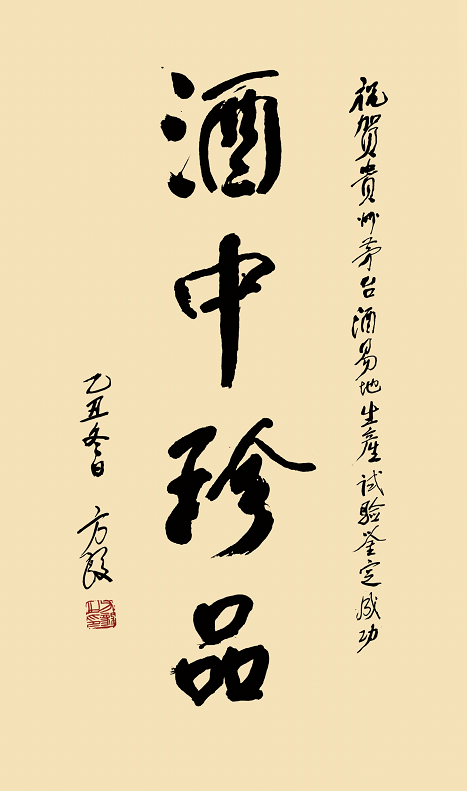 祝賀貴州茅台酒易地生產试验鉴定成功
酒中珍品
乙丑冬日 方毅